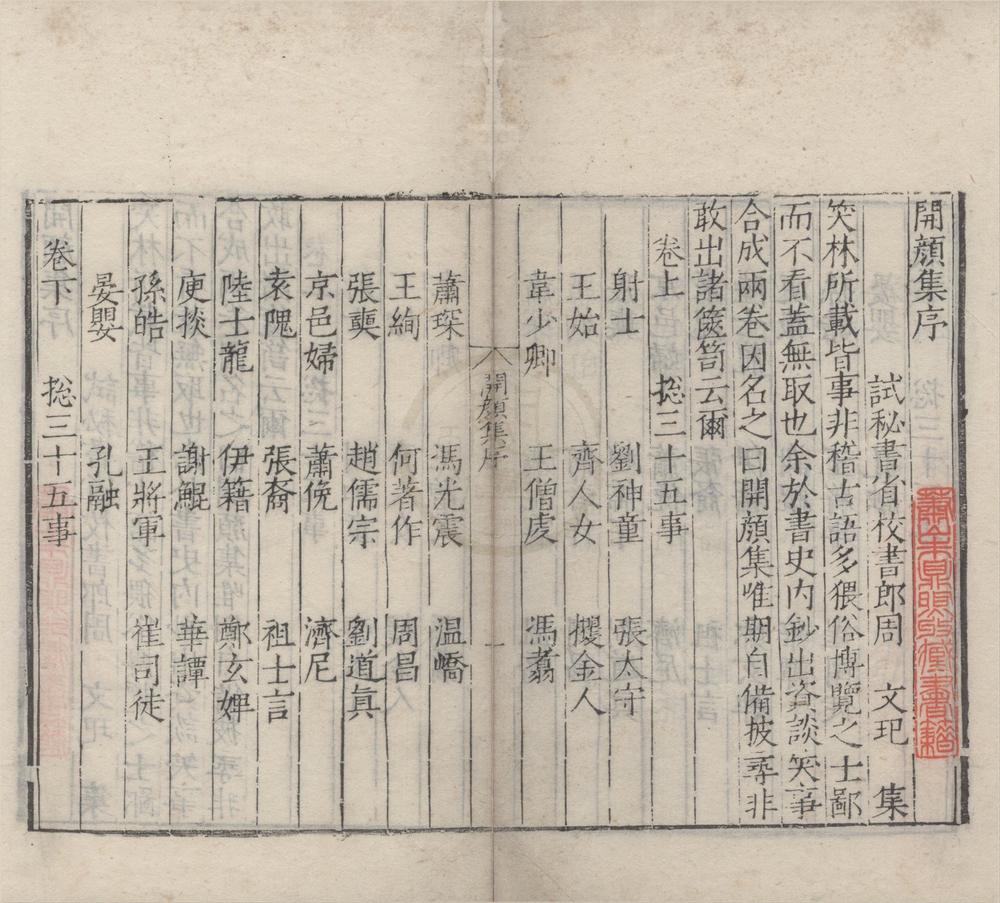 開顔集序
試秘書省校書郎周 文玘 集
笑林所載皆事非稽古語多猥俗博覽之士鄙
而不看蓋無取也余於書史内鈔出資談笑事
合成兩卷因名之曰開顔集唯期自備披尋非
敢出諸篋笥云爾
卷上 捴三十五事
射士 劉神童 張太守
王始 齊人女 攫金人
韋少卿 王僧虔 馮翥
開顔集序 一
蕭琛 馮光震 温嶠
王絢 何著作 周昌
張奭 趙儒宗 劉道真
京邑婦 蕭俛 濟尼
袁隗 張裔 祖士言
陸士龍 伊籍 鄭玄婢
庾掞 謝鯤 華譚
孫皓 王將軍 崔司徒
晏嬰 孔融
卷下 捴三十五事